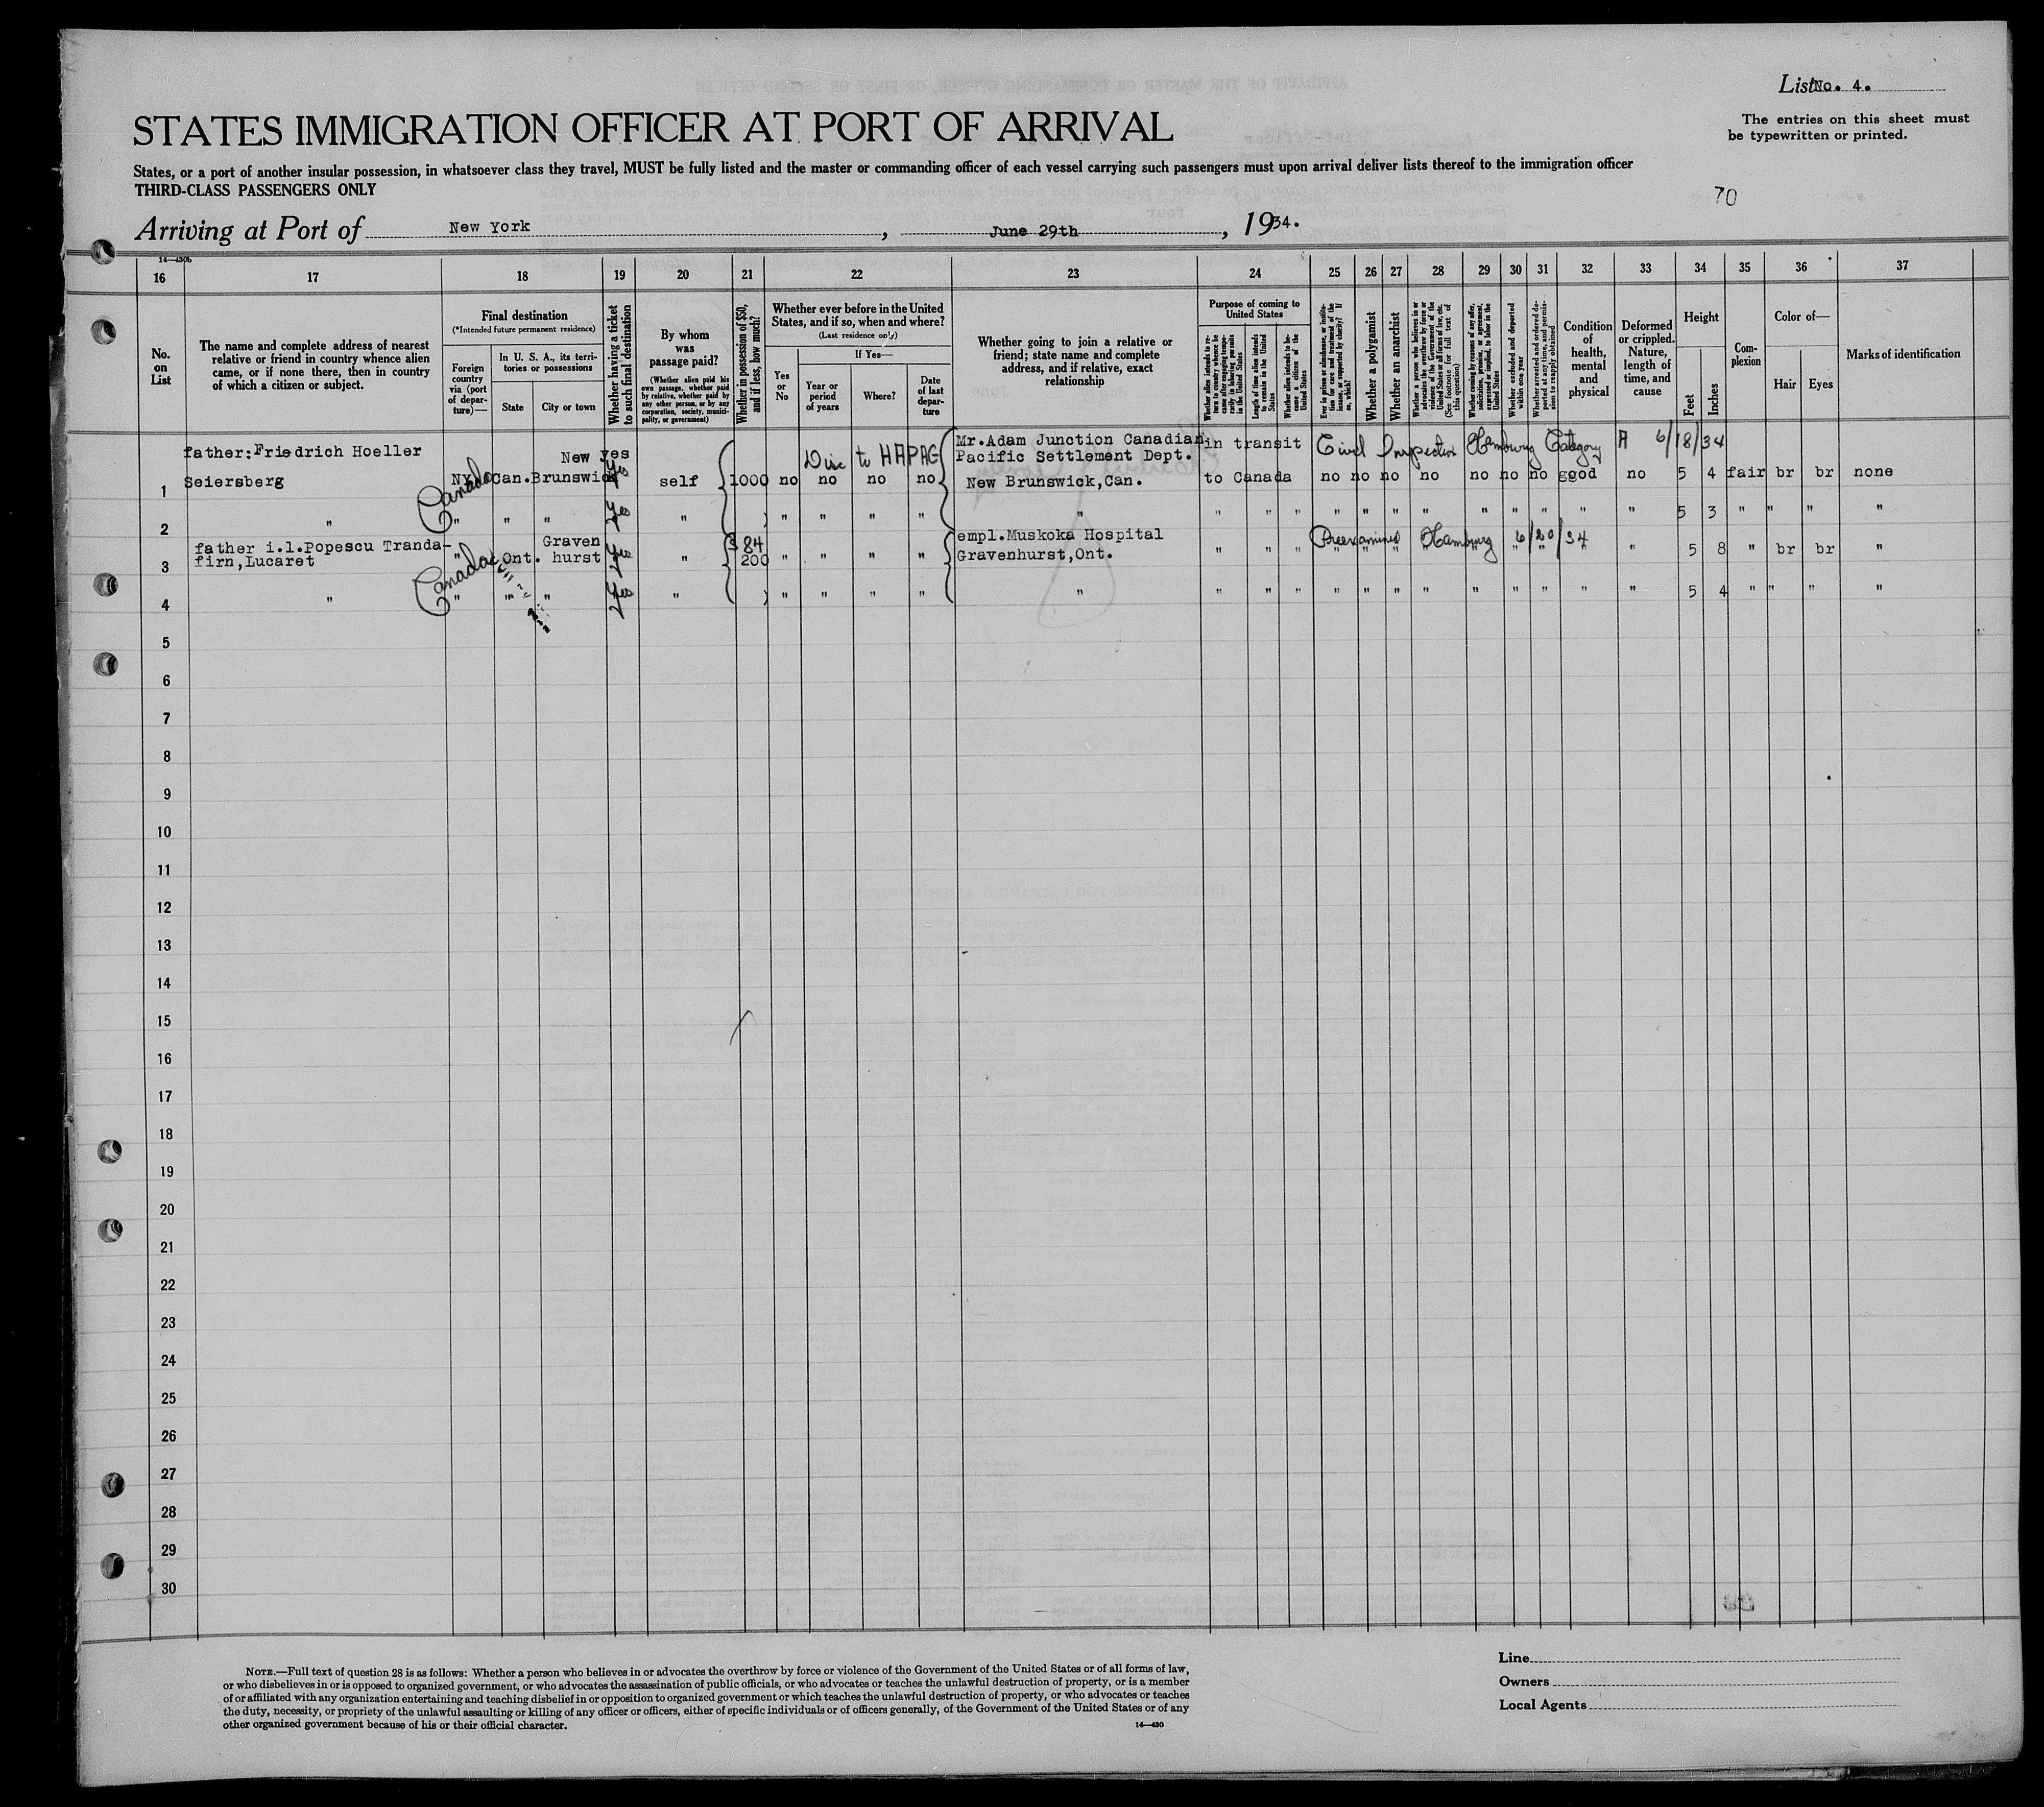 List No. 4.
The entries on this sheet must
be typewritten or printed.
STATES IMMIGRATION OFFICER AT PORT OF ARRIVAL
States, or a port of another insular possession, in whatsoever class they travel, MUST be fully listed and the master or commanding officer of each vessel carrying such passengers must upon arrival deliver lists thereof to the immigration officer
THIRD-CLASS PASSENGERS ONLY
70
Arriving at Port of New York, June 29th, 1934.
14—430b
16 17 18 19 20 21 22 23 24 25 26 27 28 29 30 31 32 33 34 35 36 37
No. on List
The name and complete address of nearest relative or friend in country whence alien came, or if none there, then in country of which a citizen or subject.
Final destination
(*Intended future permanent residence)
Foreign country via (port of departure)—
In U. S. A., its territories or possessions
State
City or town
Whether having a ticket to such final destination
By whom was passage paid?
(Whether alien paid his own passage, whether paid by relative, whether paid by any other person, or by any corporation, society, municipality, or government)
Whether in possession of $50, and if less, how much?
Whether ever before in the United States, and if so, when and where?
(Last residence only)
Yes or No
If Yes—
Year or period of years
Where?
Date of last departure
Whether going to join a relative or friend; state name and complete address, and if relative, exact relationship
Purpose of coming to United States
Whether alien intends to return to country whence he came after engaging temporarily in laboring pursuits in the United States
Length of time alien intends to remain in the United States
Whether alien intends to become a citizen of the United States
Ever in prison or almshouse, or institution for care and treatment of the insane, or supported by charity? If so, which?
Whether a polygamist
Whether an anarchist
Whether a person who believes in or advocates the overthrow by force or violence of the Government of the United States or all forms of law, etc. (See footnote for full text of this question)
Whether coming by reason of any offer, solicitation, promise, or agreement, expressed or implied, to labor in the United States
Whether excluded and deported within one year
Whether arrested and ordered deported at any time and permission to reapply obtained
Condition of health, mental and physical
Deformed or crippled. Nature, length of time, and cause
Height
Feet
Inches
Complexion
Color of—
Hair
Eyes
Marks of identification
father: Friedrich Hoeller New yes Disc to HAPAG Mr.Adam Junction Canadian in transit Civil Inspection Hamburg Category A 6/18/34
Pacific Settlement Dept.
1 Seiersberg NY Canada Can. Brunswick yes self 1000 no no no no New Brunswick,Can. to Canada no no no no no no no good no 5 4 fair br br none
2 " " " " yes " " " " " " " " " " " " " " " " " " " 5 3 " " " "
father i.l.Popescu Tranda- Graven $ 84 empl.Muskoka Hospital Preexamined Hamburg 6/20/34
3 firn,Lucaret " Canada Ont. hurst yes " 200 " " " " Gravenhurst,Ont. " " " " " " " " " " " " 5 8 " br br "
4 " " " " yes " " " " " " " " " " " " " " " " " " " 5 4 " " " "
5
6
7
8
9
10
11
12
13
14
15
16
17
18
19
20
21
22
23
24
25
26
27
28
29
30
NOTE.—Full text of question 28 is as follows: Whether a person who believes in or advocates the overthrow by force or violence of the Government of the United States or of all forms of law,
or who disbelieves in or is opposed to organized government, or who advocates the assassination of public officials, or who advocates or teaches the unlawful destruction of property, or is a member
of or affiliated with any organization entertaining and teaching disbelief in or opposition to organized government or which teaches the unlawful destruction of property, or who advocates or teaches
the duty, necessity, or propriety of the unlawful assaulting or killing of any officer or officers, either of specific individuals or of officers generally, of the Government of the United States or of any
other organized government because of his or their official character.
14—430
Line
Owners
Local Agents